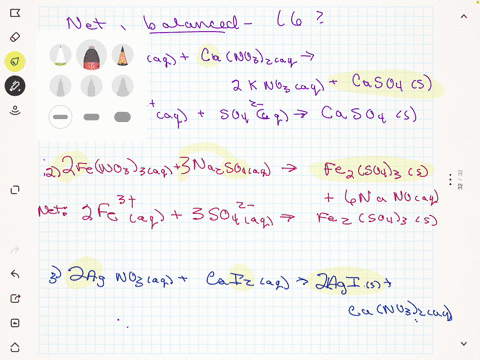 Net, balanced - L6?
(aq) + Ca(NO3)2(aq) →
2KNO3(aq) + CaSO4(s)
+(aq) + SO4 2-(aq) → CaSO4(s)
2) 2Fe(NO3)3(aq) + 3Na2SO4(aq) → Fe2(SO4)3(s)
+ 6NaNO(aq)
Net: 2Fe 3+(aq) + 3SO4 2-(aq) → Fe2(SO4)3(s)
32 / 32
3) 2AgNO3(aq) + CaI2(aq) → 2AgI(s) +
Ca(NO3)2(aq)